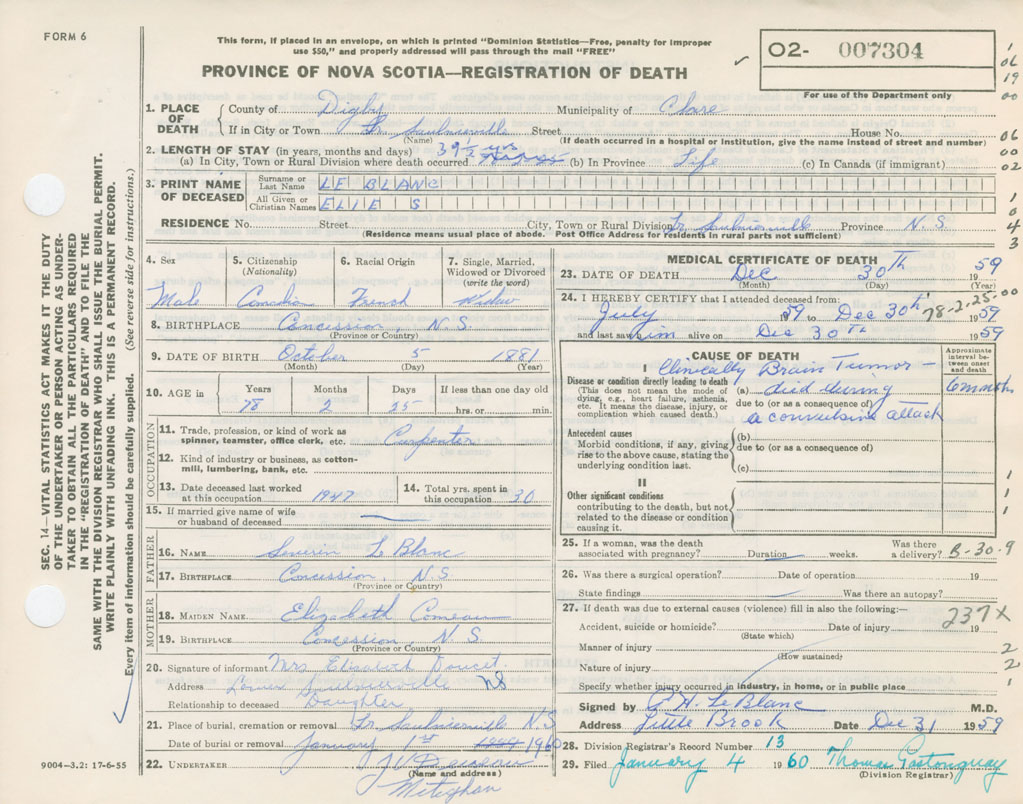 FORM 6
This form, if placed in an envelope, on which is printed "Dominion Statistics—Free, penalty for improper
use $50," and properly addressed will pass through the mail "FREE"
PROVINCE OF NOVA SCOTIA—REGISTRATION OF DEATH
O2- 007304
For use of the Department only
1
06
19
00
06
00
02
1
0
4
3
SEC. 14—VITAL STATISTICS ACT MAKES IT THE DUTY
OF THE UNDERTAKER OR PERSON ACTING AS UNDER-
TAKER TO OBTAIN ALL THE PARTICULARS REQUIRED
IN THE "REGISTRATION OF DEATH" AND TO FILE THE
SAME WITH THE DIVISION REGISTRAR WHO SHALL ISSUE THE BURIAL PERMIT.
WRITE PLAINLY WITH UNFADING INK. THIS IS A PERMANENT RECORD.
Every item of information should be carefully supplied. (See reverse side for instructions.)
1. PLACE OF DEATH County of Digby Municipality of Clare
If in City or Town Lr. Saulnierville Street House No.
(Name) (If death occurred in a hospital or institution, give the name instead of street and number)
2. LENGTH OF STAY (in years, months and days) 39½ yrs
(a) In City, Town or Rural Division where death occurred (b) In Province Life (c) In Canada (if immigrant)
3. PRINT NAME OF DECEASED Surname or Last Name LE BLANC
All Given or Christian Names ELIE S
RESIDENCE No. Street City, Town or Rural Division Lr Saulnierville Province N.S.
(Residence means usual place of abode. Post Office Address for residents in rural parts not sufficient)
4. Sex 5. Citizenship (Nationality) 6. Racial Origin 7. Single, Married, Widowed or Divorced (write the word)
Male Canadian French Widow
8. BIRTHPLACE Concession, N.S.
(Province or Country)
9. DATE OF BIRTH October 5 1881
(Month) (Day) (Year)
10. AGE in Years Months Days If less than one day old
78 2 25 hrs. or min.
OCCUPATION
11. Trade, profession, or kind of work as
spinner, teamster, office clerk, etc. Carpenter
12. Kind of industry or business, as cotton-
mill, lumbering, bank, etc.
13. Date deceased last worked
at this occupation 1947
14. Total yrs. spent in
this occupation 30
15. If married give name of wife
or husband of deceased
FATHER
16. NAME Severin Le Blanc
17. BIRTHPLACE Concession, N.S.
(Province or Country)
MOTHER
18. MAIDEN NAME Elizabeth Comeau
19. BIRTHPLACE Concession, N.S.
(Province or Country)
20. Signature of informant Mrs Elizabeth Doucet.
Address Lower Saulnierville NS
Relationship to deceased Daughter
21. Place of burial, cremation or removal Lr Saulnierville N.S.
Date of burial or removal January 1st 1960
22. UNDERTAKER
(Name and address)
Meteghan
9004—3.2: 17-6-55
MEDICAL CERTIFICATE OF DEATH
23. DATE OF DEATH Dec 30th 1959
(Month) (Day) (Year)
24. I HEREBY CERTIFY that I attended deceased from:
78-2-25-00
July 1959 to Dec 30th 1959
and last saw him alive on Dec 30th 1959
CAUSE OF DEATH
Approximate interval between onset and death
I
Clinically Brain Tumor—
Disease or condition directly leading to death
(This does not mean the mode of
dying, e.g., heart failure, asthenia,
etc. It means the disease, injury, or
complication which caused death.)
(a) died during 6 months
due to (or as a consequence of)
a convulsive attack
Antecedent causes
Morbid conditions, if any, giving
rise to the above cause, stating the
underlying condition last.
(b)
due to (or as a consequence of)
(c)
II
Other significant conditions
contributing to the death, but not
related to the disease or condition
causing it.
1
1
1
25. If a woman, was the death
associated with pregnancy? Duration weeks. Was there
a delivery? B-30-9
26. Was there a surgical operation? Date of operation 19
State findings Was there an autopsy?
27. If death was due to external causes (violence) fill in also the following:— 237X
Accident, suicide or homicide? Date of injury 19
(State which)
Manner of injury 2
(How sustained)
Nature of injury 2
Specify whether injury occurred in industry, in home, or in public place 1
Signed by H. Le Blanc M.D.
Address Little Brook Date Dec 31 1959
28. Division Registrar's Record Number 13
29. Filed January 4 1960 Thomas Gastonguay
(Division Registrar)